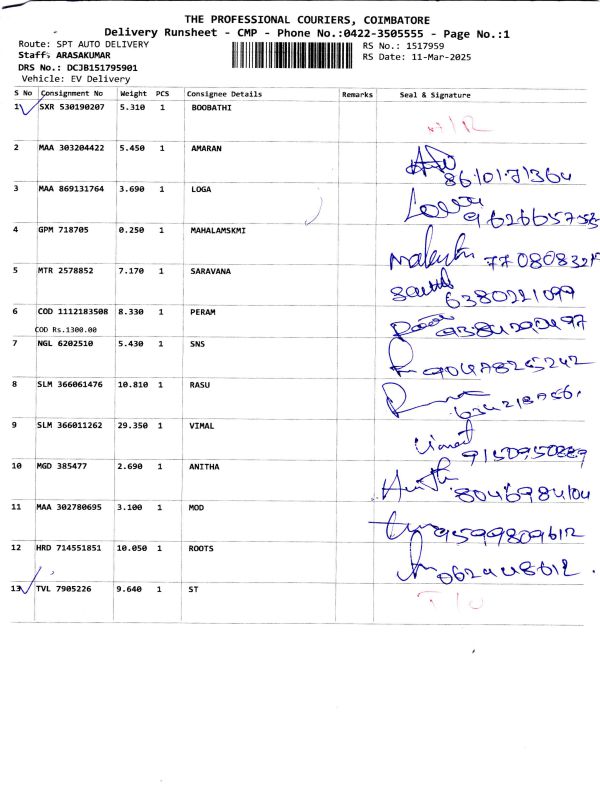 THE PROFESSIONAL COURIERS, COIMBATORE
Delivery Runsheet - CMP - Phone No.:0422-3505555 - Page No.:1
Route: SPT AUTO DELIVERY RS No.: 1517959
Staff: ARASAKUMAR RS Date: 11-Mar-2025
DRS No.: DCJB151795901
Vehicle: EV Delivery
S No Consignment No Weight PCS Consignee Details Remarks Seal & Signature
1 SXR 530190207 5.310 1 BOOBATHI
2 MAA 303204422 5.450 1 AMARAN
8610171364
3 MAA 869131764 3.690 1 LOGA
4 GPM 718705 0.250 1 MAHALAMSKMI
5 MTR 2578852 7.170 1 SARAVANA
6380221099
6 COD 1112183508 8.330 1 PERAM
COD Rs.1300.00
7 NGL 6202510 5.430 1 SNS
8 SLM 366061476 10.810 1 RASU
9 SLM 366011262 29.350 1 VIMAL
9150950889
10 MGD 385477 2.690 1 ANITHA
8046984104
11 MAA 302780695 3.100 1 MOD
9599809612
12 HRD 714551851 10.050 1 ROOTS
13 TVL 7905226 9.640 1 ST